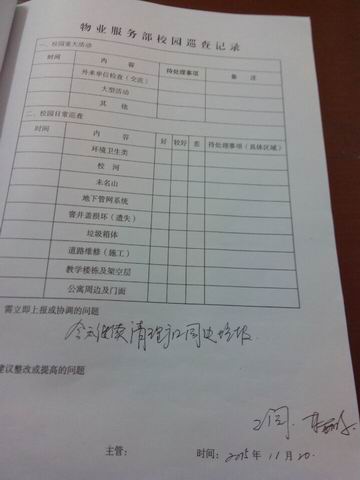 物业服务部校园巡查记录
一、校园重大活动
时间 内容 待处理事项 备注
外来单位检查（交流）
大型活动
其他
二、校园日常巡查
时间 内容 好 较好 差 待处理事项（具体区域）
环境卫生类
校河
未名山
地下管网系统
窨井盖损坏（遗失）
垃圾箱体
道路维修（施工）
教学楼栋及架空层
公寓周边及门面
需立即上报或协调的问题
今天继续清理
建议整改或提高的问题
主管： 时间：2015年11月20.